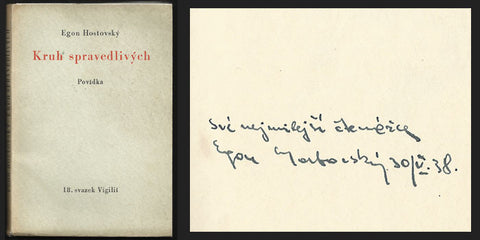 Egon Hostovský
Kruh spravedlivých
Povídka
18. svazek Vigilií
své nejmilejší čtenářce
Egon Hostovský 30/V. 38.